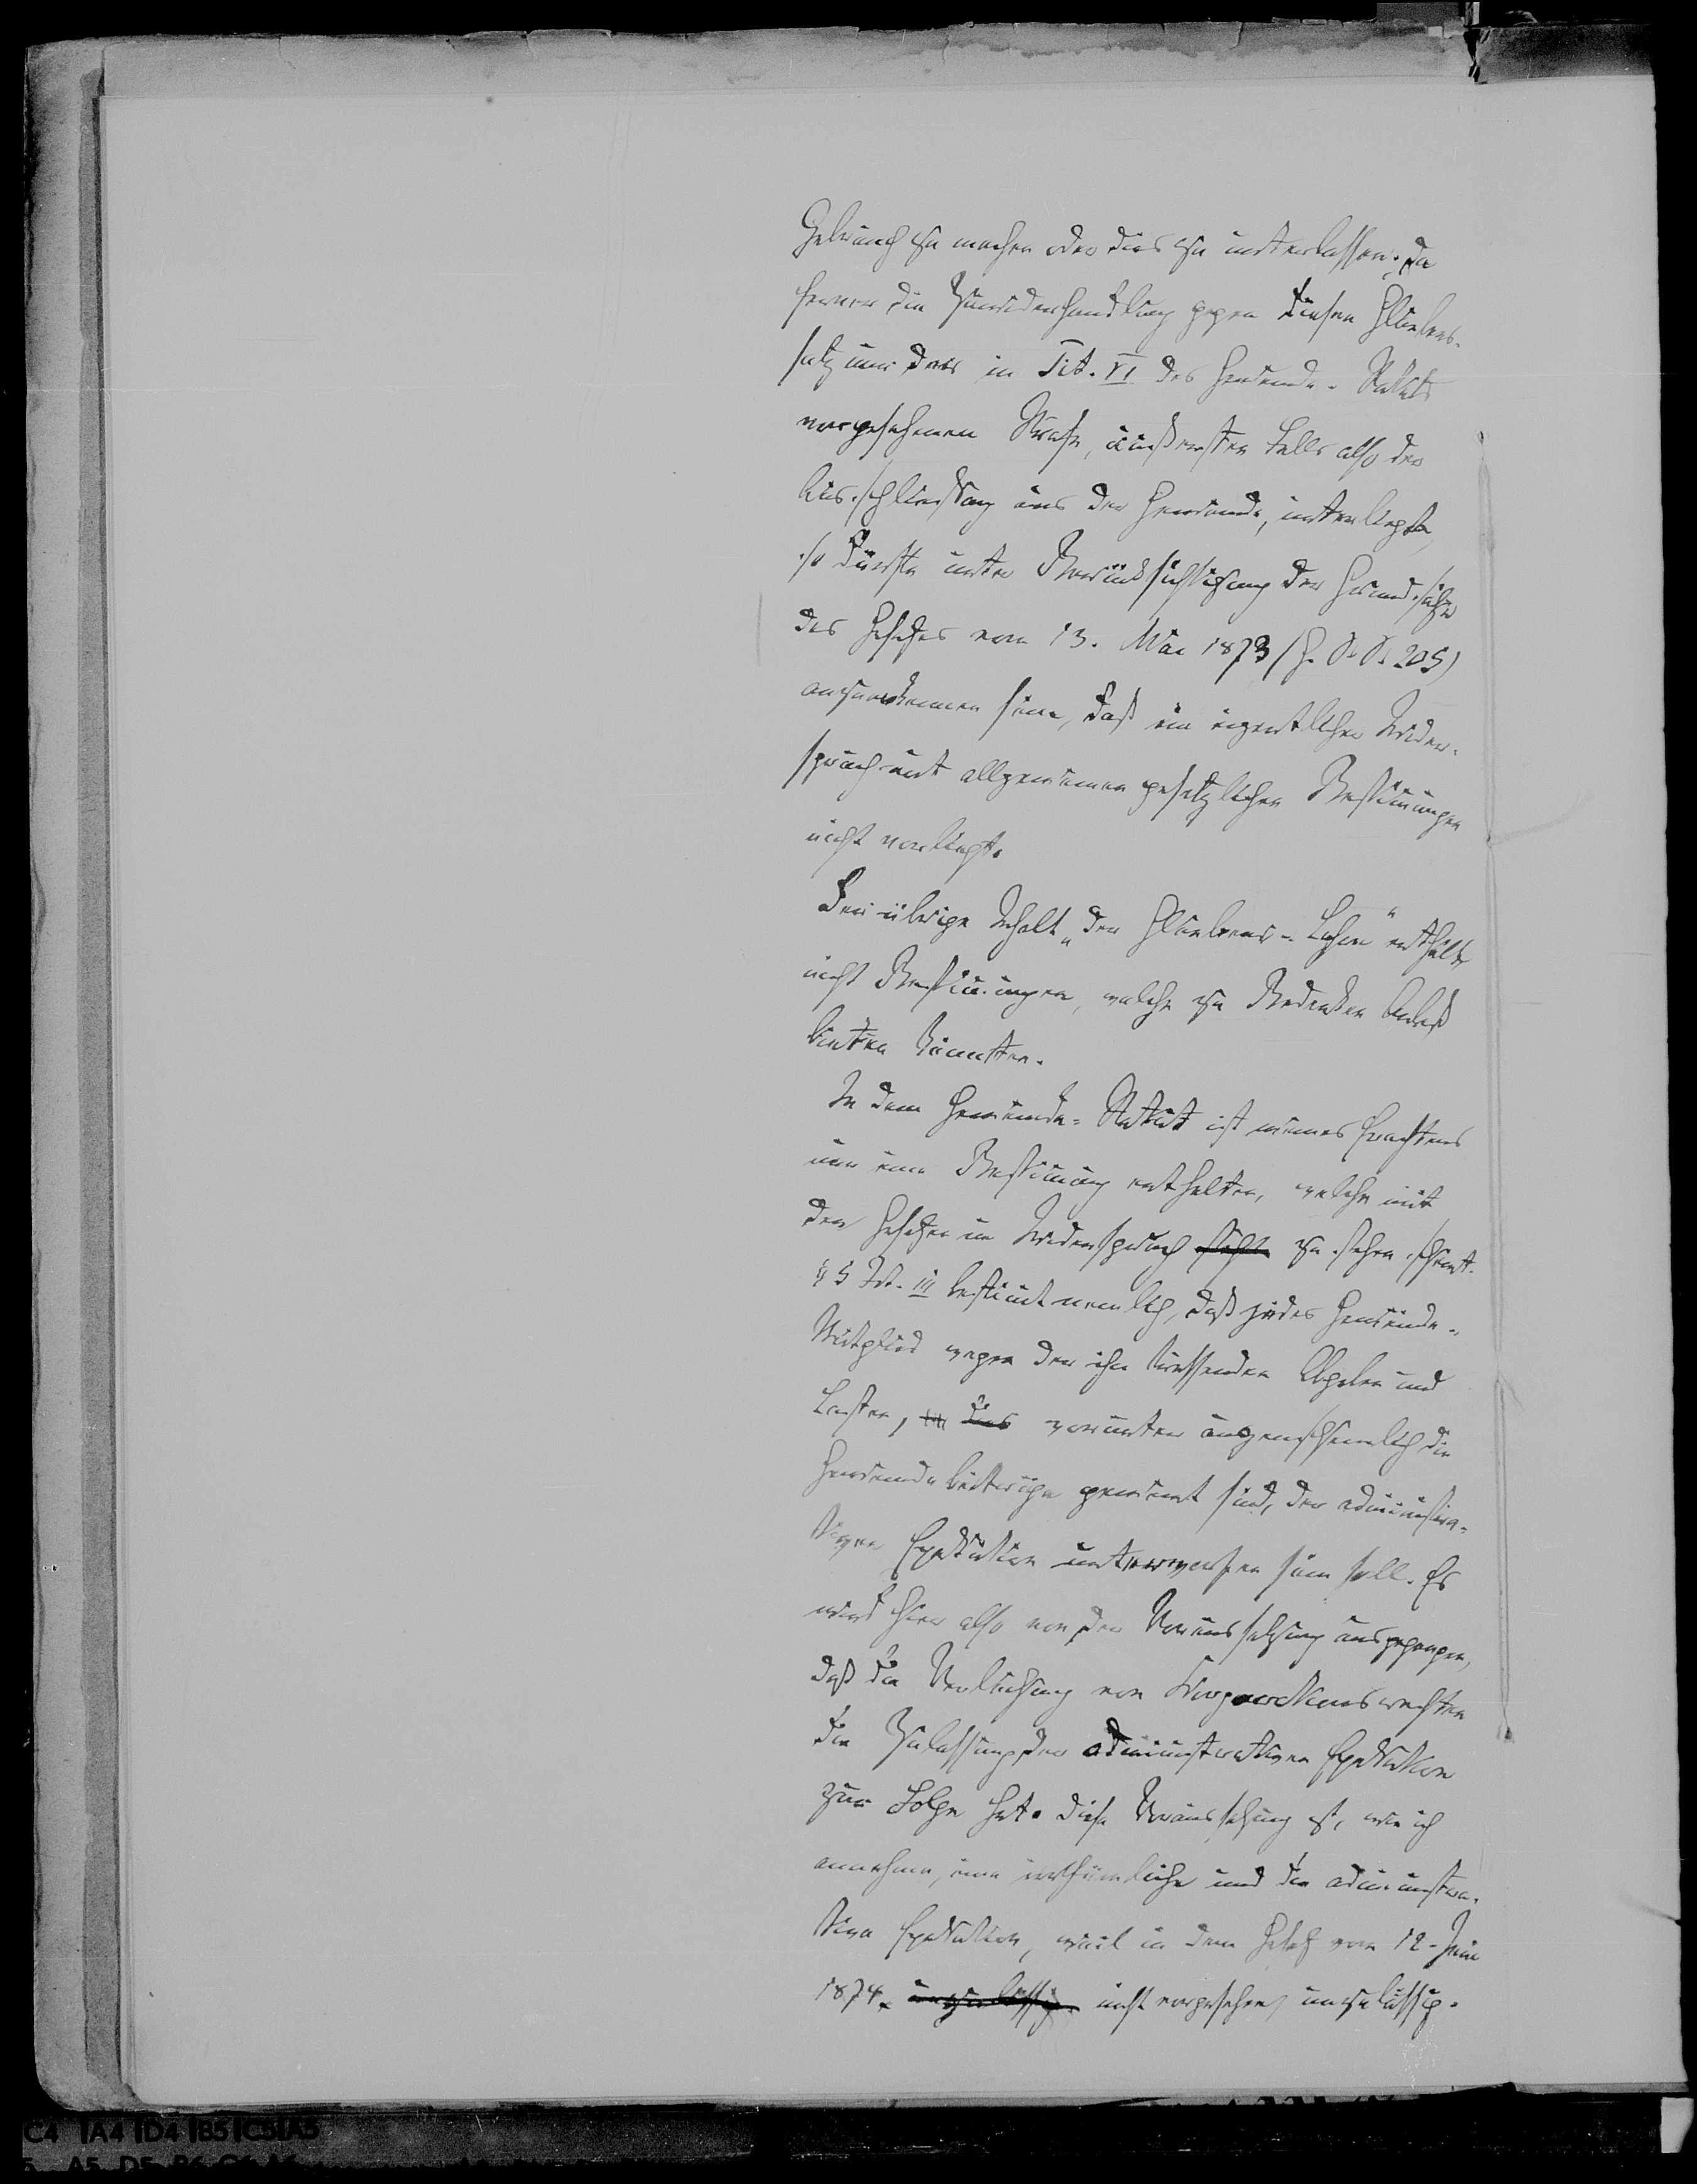 Gebrauch zu machen oder dies zu unterlassen; da
ferner die Zuwiderhandlung gegen diesen Glaubens-
satz nur der in Tit. VI des Gemeinde-Statuts
vorgesehenen Strafe, äußersten Falls also der
Ausschließung aus der Gemeinde, unterliegt,
so dürfte unter Berücksichtigung der Grundsätze
des Gesetzes vom 13. Mai 1873 (G. S. S. 205)
anzuerkennen sein, daß ein eigentlicher Wider-
spruch mit allgemeinen gesetzlichen Bestimungen
nicht vorliegt.
Der übrige Inhalt „der Glaubens-Lehre" enthält
nicht Bestimungen, welche zu Bedenken Anlaß
bieten könnten.
In dem Gemeinde-Statut ist meines Erachtens
nur eine Bestimung enthalten, welche mit
den Gesetzen im Widerspruch zu stehen scheint.
§ 5 Tit. III bestimt nemlich, daß jedes Gemeinde-
Mitglied wegen der ihn treffenden Abgaben und
Lasten, das worunter augenscheinlich die
Gemeindebeiträge gemeint sind, der administra-
tiven Exekution unterworfen sein soll. Es
wird hier also von der Voraussetzung ausgegangen,
daß die Verleihung von Korporationsrechten
die Zulassung der administrativen Exekution
zur Folge hat. Diese Voraussetzung ist, wie ich
annehme, eine irrthümliche und die administra-
tive Exekution, weil in dem Gesetz vom 12. Juni
1874. unzulässig nicht vorgesehen, unzulässig.
C4 A4 D4 B5 C5 A5